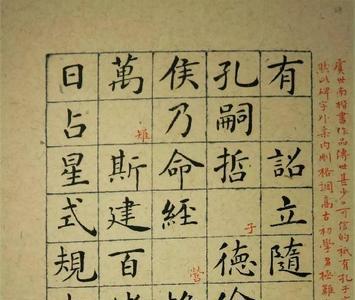 虞世南楷書作品傳世甚少。可信的祇有孔子
此碑字外柔内剛格調高古初學極難
有詔立隨
孔嗣哲子德
侯乃命經營
萬雉斯建百
日占星式規